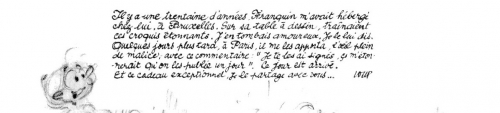 Il y a une trentaine d'années, Franquin m'avait hébergé
chez lui, à Bruxelles. Sur sa table à dessin, traînaient
ces croquis étonnants. J'en tombais amoureux. Je le lui dis.
Quelques jours plus tard, à Paris, il me les apporta, l'œil plein
de malice, avec ce commentaire: "Je te les ai signés, ça m'éton-
nerait qu'on les publie un jour". Ce jour est arrivé.
Et ce cadeau exceptionnel, je le partage avec vous...